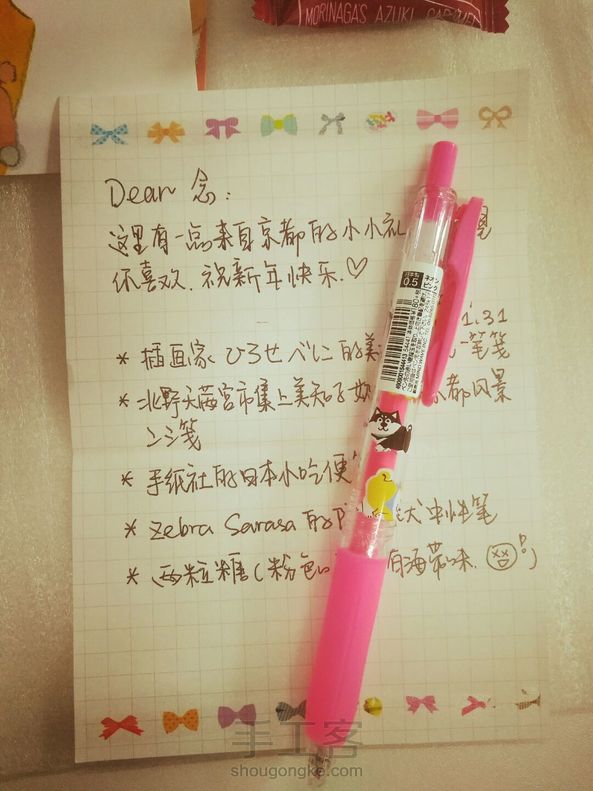 MORINAGAS AZUKI CA
Dear 念:
这里有一点来自京都的小小礼
你喜欢.祝新年快乐.♡
1.31
* 插画家 ひろせべに 的美 笔笺
* 北野天满宫市集上美知子 都风景
一笺
* 手纸社的日本小吃便
* Zebra Sarasa 的 犬中性笔
* 两粒糖(粉色 有海苔味. )
0.5
ネオン
ピンク
手工客
shougongke.com